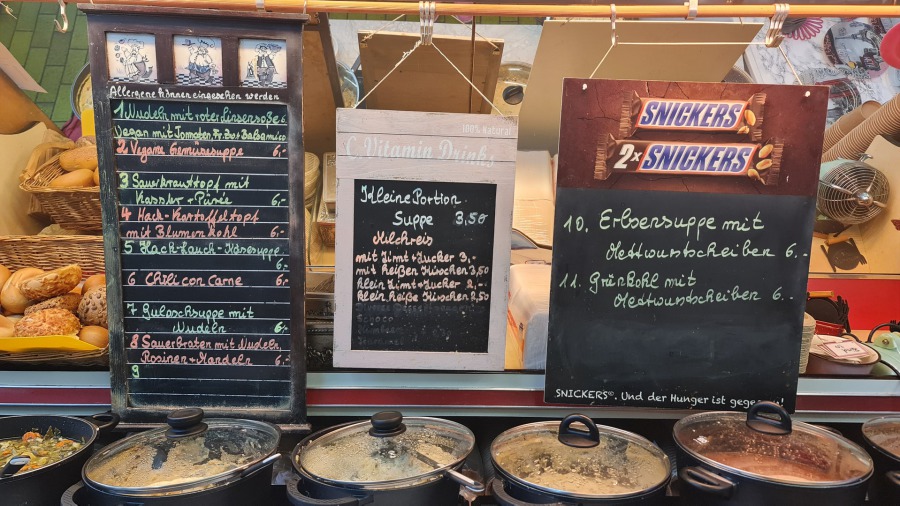 Allergene können eingesehen werden
1 Nudeln mit roter Linsensoße 6.
Vegan mit Tomaten Fr. Zw + Balsamico
2 Vegane Gemüsesuppe 6,-
3 Sauerkrauttopf mit
Kassler + Püree 6,-
4 Hack-Kartoffeltopf
mit Blumenkohl 6,-
5 Hack-Lauch-Käsesuppe
6,-
6 Chili con Carne 6,-
7 Gulaschsuppe mit
Nudeln 6,-
8 Sauerbraten mit Nudeln,
Rosinen + Mandeln 6,-
9
100% Natural
C-Vitamin Drinks
Kleine Portion
Suppe 3,50
Milchreis
mit Zimt + Zucker 3,-
mit heißen Kirschen 3,50
klein Zimt + Zucker 2,-
klein heiße Kirschen 2,50
SNICKERS
2x SNICKERS
10. Erbsensuppe mit
Mettwurstscheiben 6.-
11. Grünkohl mit
Mettwurstscheiben 6.-
SNICKERS®. Und der Hunger ist gegessen!